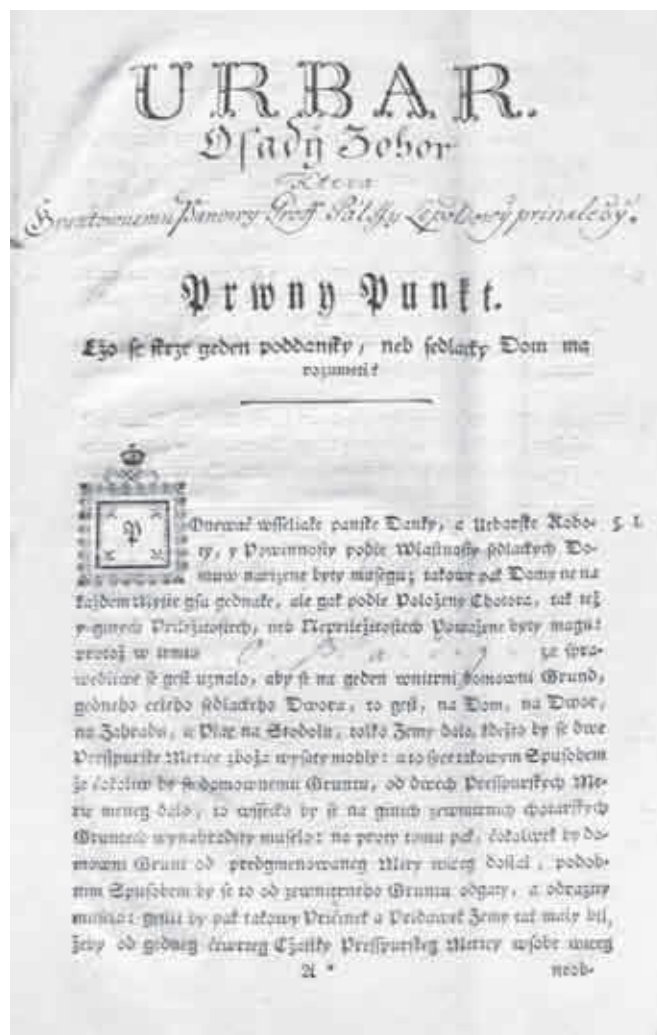 URBAR.
Osadÿ Zohor
Ktera
Panowy Groff Palffy prinaležÿ.
Prwny Punkt.
Cžo se skrze geden poddansky, neb sedlacky Dom ma
rozumeti?
POnewač wsseliake panske Danky, a Urbarske Robo- §. I.
ty, y Powinnosty podle Wlastnosty sedlackych Do-
muw narizene byty musegu; takowe pak Domy ne na
každem Mysie gsu gednake, ale gak podle Položeny Chotara, tak též
y ginych Priležitostech, neb Nepriležitostech Powažene byty magu:
protož w temto za spra-
wedliwe se gest uznalo, aby se na geden wnitrni domowni Grund,
gedneho celeho sedlackeho Dwora, to gest, na Dom, na Dwor,
na Zahradu, a Plac na Stodolu, tolko Zemy dalo, kdežto by se dwe
Presspurske Merice zboža wysaty mohly: a to sice takowym Spusobem
že čokoliw by se domownemu Gruntu, od dwech Presspurskych Me-
ric meneg dalo, to wssecko by se na ginich zewnitrnich chotarskych
Gruntech wynahradity muselo: na proty tomu pak, čokoliwek by do-
mowni Grunt od predgmenowaneg Miry wiceg dostal, podob-
nim Spusobem by se to od zewnitrneho Gruntu odgaty, a odrazyty
muselo: gestli by pak takowy Pričinek a Pridawek Zemy tak maly bil,
žeby od gedneg čtwrteg Cžastky Pressspurskeg Merice wsobe wiceg
A * neob-